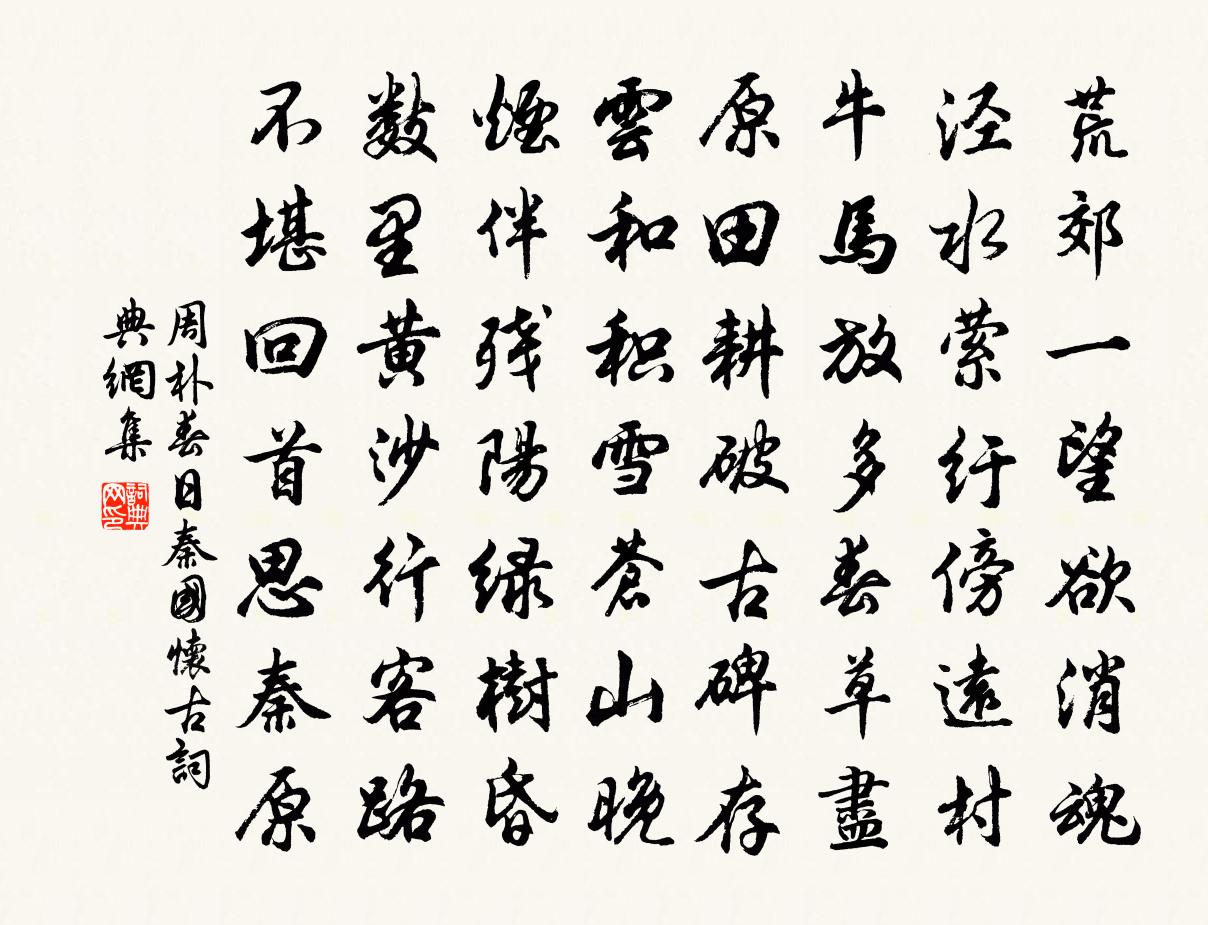 荒郊一望欲消魂
泾水萦纡傍遠村
牛馬放多春草盡
原田耕破古碑存
雲和积雪蒼山晚
煙伴残陽绿樹昏
數里黄沙行客路
不堪回首思秦原
周朴春日秦國懷古詞
典網集
詞典网印